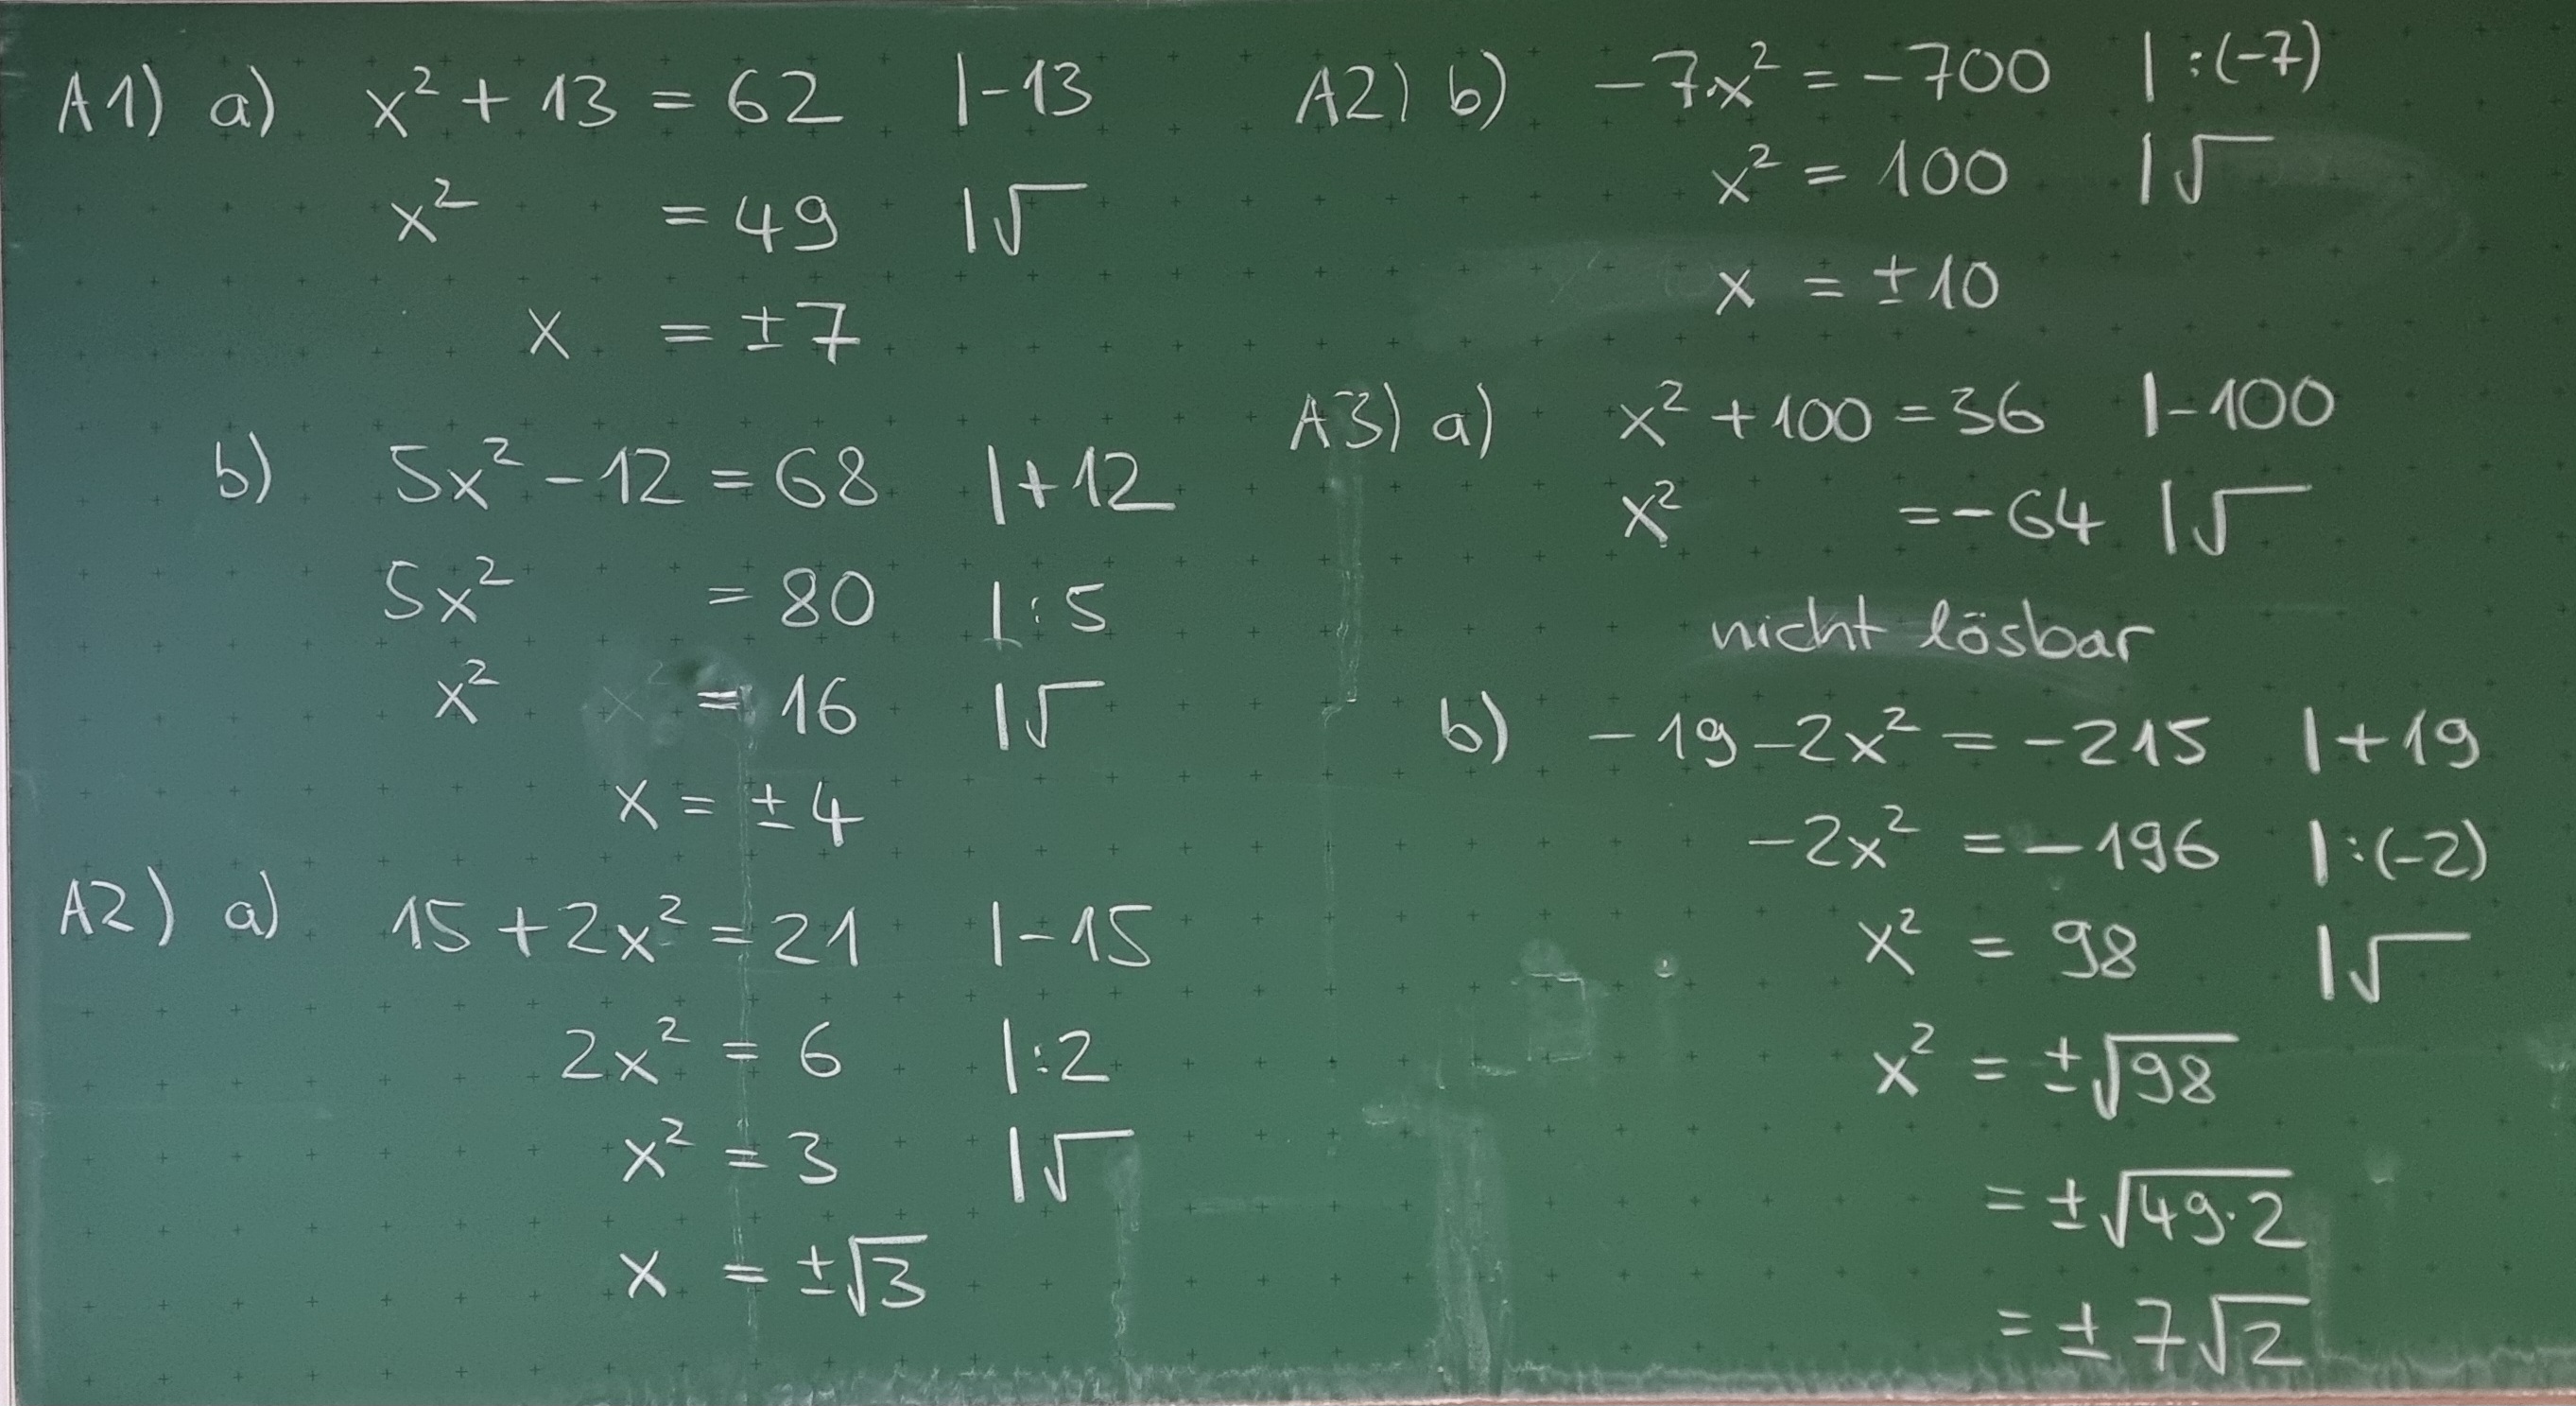 A1) a) x² + 13 = 62 |-13
x² = 49 |√
x = ±7
b) 5x² - 12 = 68 |+12
5x² = 80 |:5
x² = 16 |√
x = ±4
A2) a) 15 + 2x² = 21 |-15
2x² = 6 |:2
x² = 3 |√
x = ±√3
A2) b) -7·x² = -700 |:(-7)
x² = 100 |√
x = ±10
A3) a) x² + 100 = 36 |-100
x² = -64 |√
nicht lösbar
b) -19 - 2x² = -215 |+19
-2x² = -196 |:(-2)
x² = 98 |√
x² = ±√98
= ±√49·2
= ±7√2